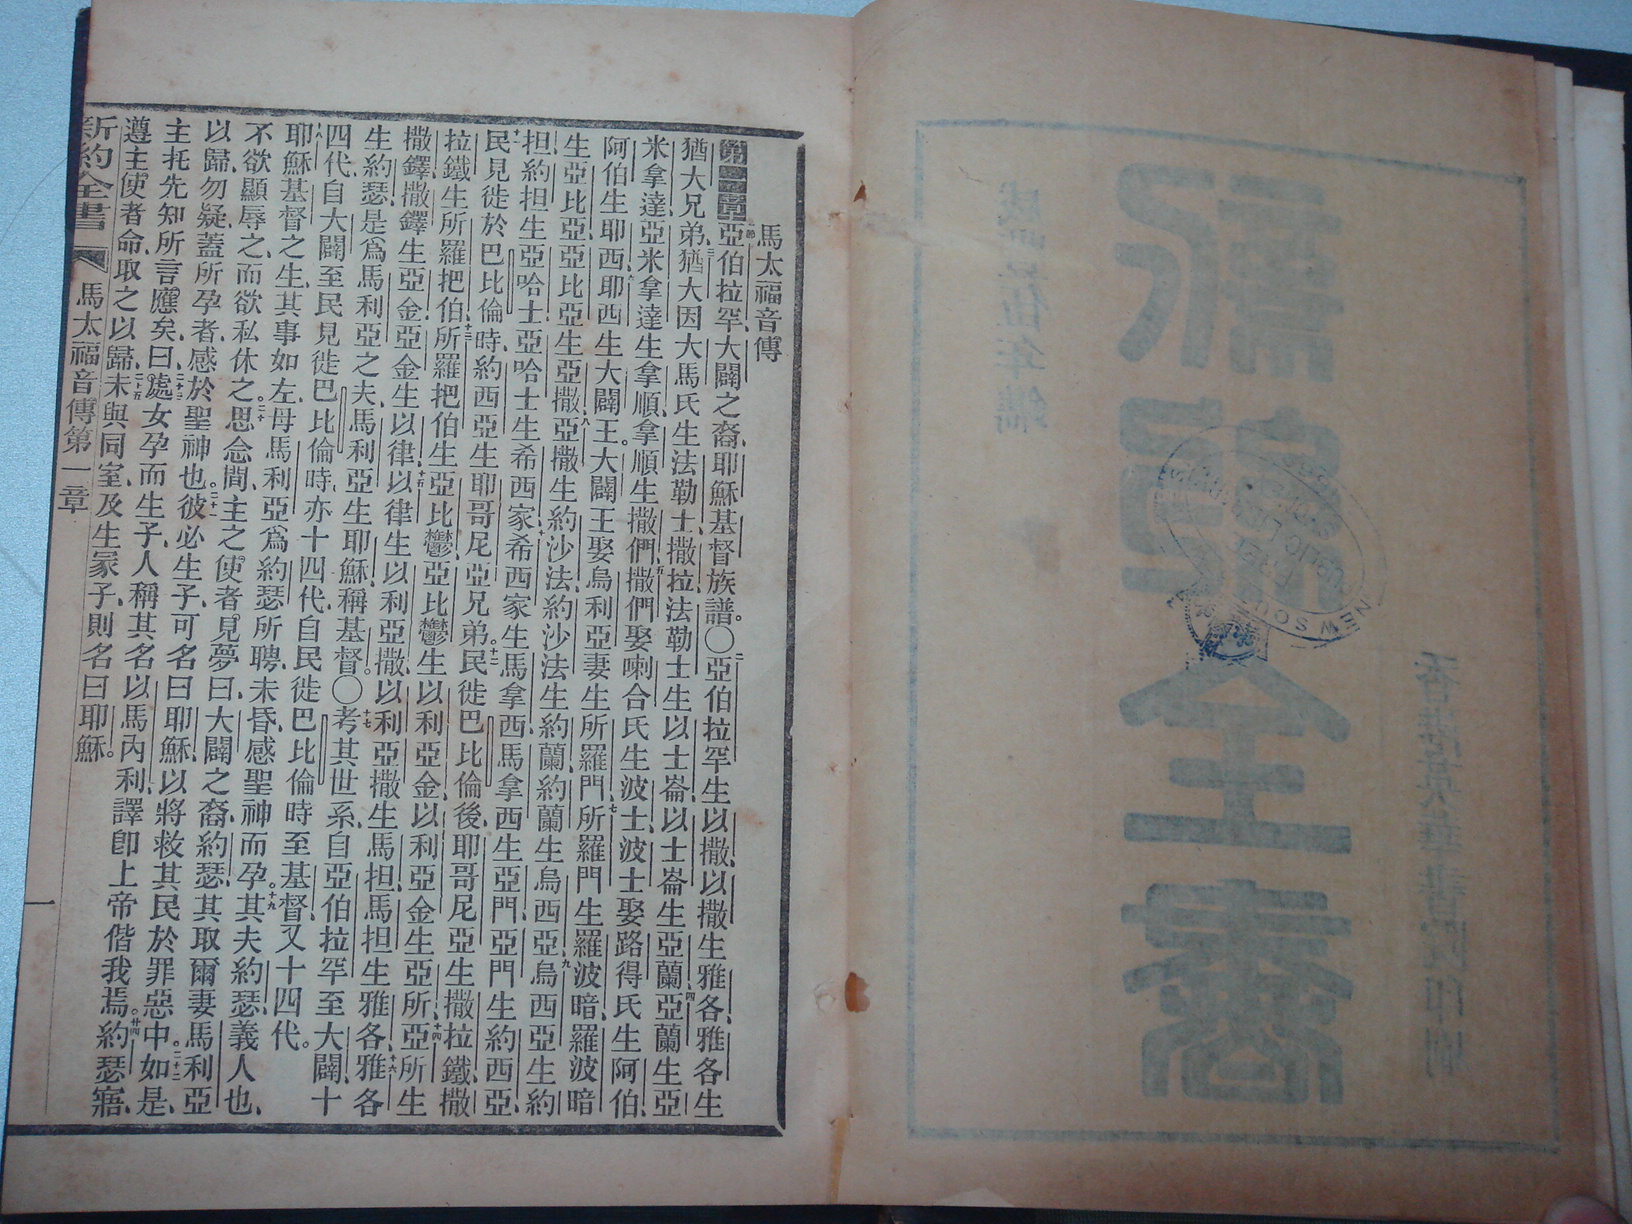 香港英華書院印刷
新約全書
馬太福音傳
第一章一節亞伯拉罕、大闢之裔、耶穌基督族譜。〇二亞伯拉罕生以撒、以撒生雅各、雅各生
猶大兄弟、三猶大因大馬氏生法勒士、撒拉、法勒士生以士崙、以士崙生亞蘭、四亞蘭生亞
米拿達、亞米拿達生拿順、拿順生撒們、五撒們娶喇合氏生波士、波士娶路得氏生阿伯、
阿伯生耶西、六耶西生大闢王。大闢王娶烏利亞妻生所羅門、七所羅門生羅波暗、羅波暗
生亞比亞、亞比亞生亞撒、八亞撒生約沙法、約沙法生約蘭、約蘭生烏西亞、九烏西亞生約
担、約担生亞哈士、亞哈士生希西家、十希西家生馬拿西、馬拿西生亞門、亞門生約西亞、
十一民見徙於巴比倫時、約西亞生耶哥尼亞兄弟。十二民徙巴比倫後、耶哥尼亞生撒拉鐵、撒
拉鐵生所羅把伯、十三所羅把伯生亞比鬱、亞比鬱生以利亞金、以利亞金生亞所、十四亞所生
撒鐸、撒鐸生亞金、亞金生以律、十五以律生以利亞撒、以利亞撒生馬担、馬担生雅各、十六雅各
生約瑟、是爲馬利亞之夫、馬利亞生耶穌稱基督。〇十七考其世系、自亞伯拉罕至大闢、十
四代、自大闢至民見徙巴比倫時、亦十四代、自民徙巴比倫時至基督、又十四代。
十八耶穌基督之生、其事如左、母馬利亞爲約瑟所聘、未昏、感聖神而孕。十九其夫約瑟義人也、
不欲顯辱之、而欲私休之、二十思念間、主之使者見夢曰、大闢之裔約瑟、其取爾妻馬利亞
以歸、勿疑、蓋所孕者、感於聖神也。二十一彼必生子、可名曰耶穌、以將救其民於罪惡中。二十二如是、
主托先知所言應矣、曰、二十三處女孕而生子、人稱其名以馬內利、譯卽上帝偕我焉。廿四約瑟寤、
遵主使者命、取之以歸、二十五未與同室、及生冢子、則名曰耶穌。
新約全書 馬太福音傳第一章 一